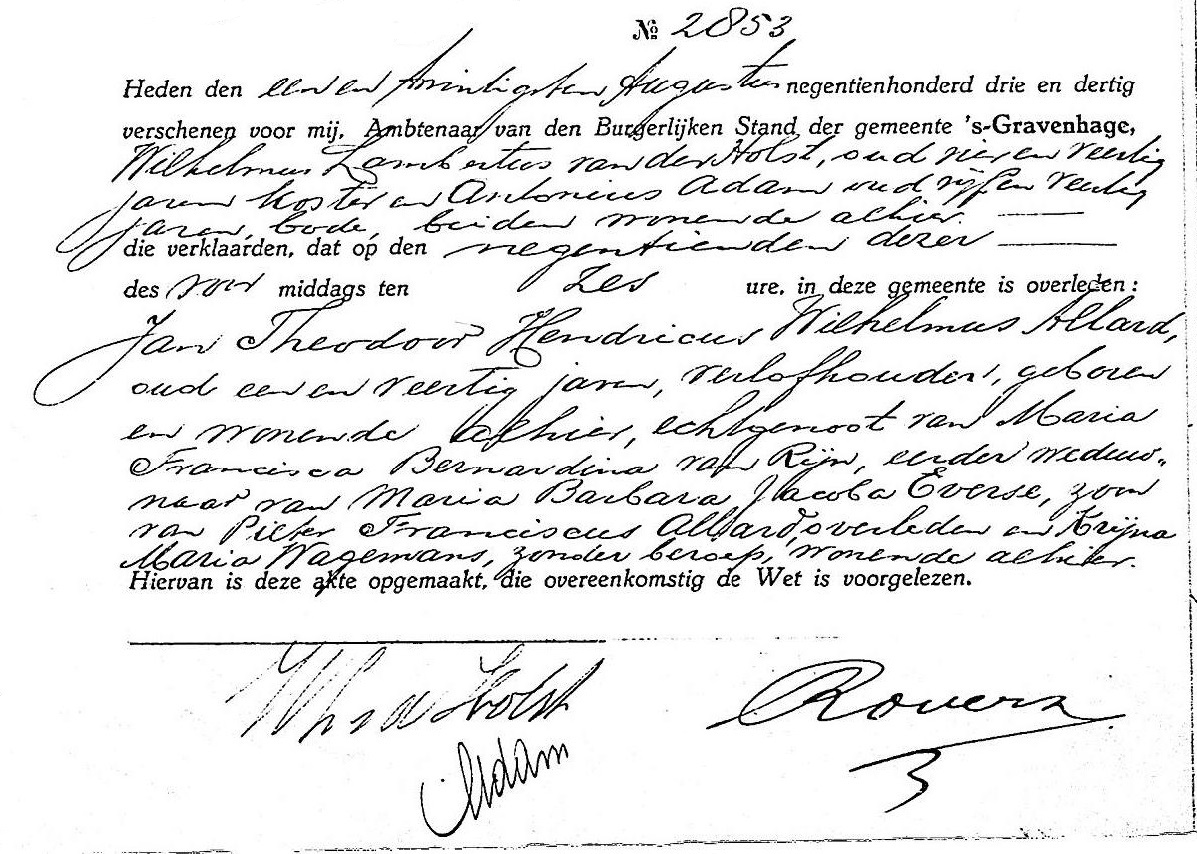 № 2853
Heden den een en twintigsten Augustus negentienhonderd drie en dertig
verschenen voor mij, Ambtenaar van den Burgerlijken Stand der gemeente 's-Gravenhage,
Wilhelmus Lambertus van der Holst, oud vier en veertig
jaren koster en Antonius Adam oud vijf en veertig
jaren, bode, beiden wonende alhier.
die verklaarden, dat op den negentienden dezer
des voor middags ten zes ure, in deze gemeente is overleden:
Jan Theodoor Hendricus Wilhelmus Allard,
oud een en veertig jaren, verlofhouder, geboren
en wonende alhier, echtgenoot van Maria
Francisca Bernardina van Rijn, eerder weduw„
naar van Maria Barbara Jacoba Everse, zoon
van Pieter Franciscus Allard, overleden en Krijna
Maria Wagemans, zonder beroep, wonende alhier.
Hiervan is deze akte opgemaakt, die overeenkomstig de Wet is voorgelezen.
Holst
Rovers
Adam